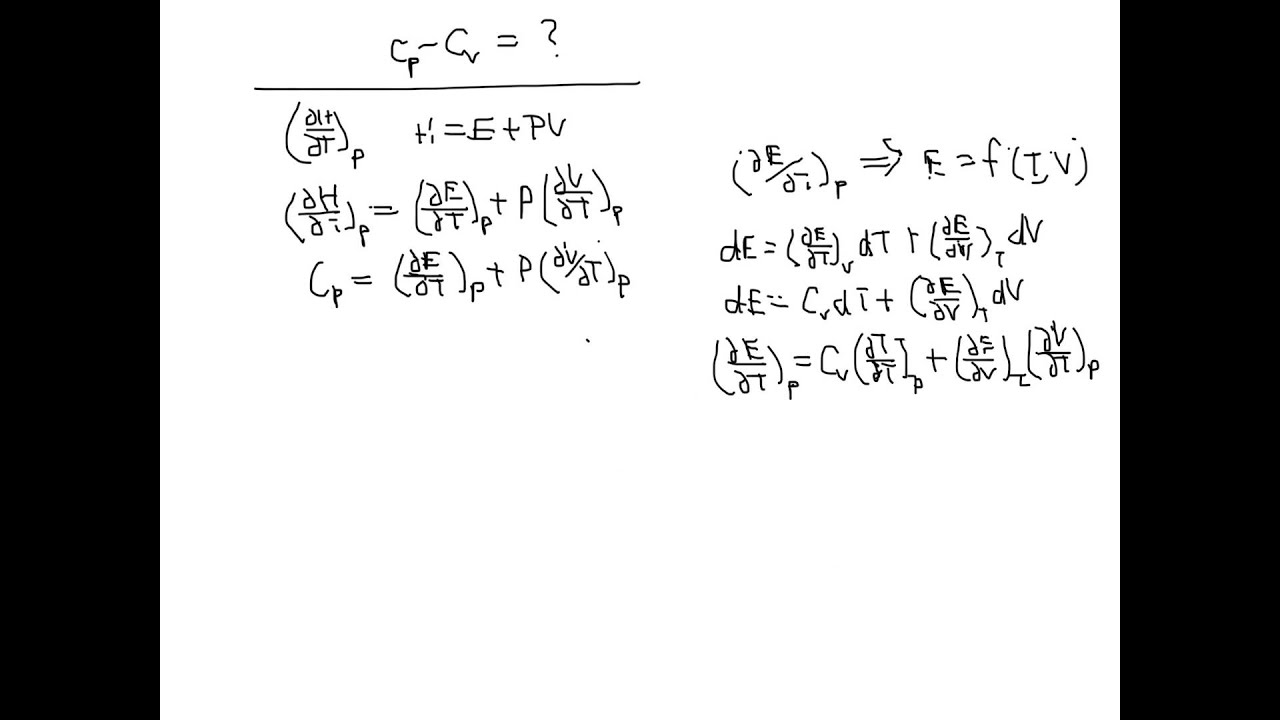 Cp - Cv = ?
(∂H/∂T)p H = E + PV
(∂H/∂T)p = (∂E/∂T)p + P(∂V/∂T)p
Cp = (∂E/∂T)p + P(∂V/∂T)p
(∂E/∂T)p ⇒ E = f(T, V)
dE = (∂E/∂T)v dT + (∂E/∂V)T dV
dE = Cv dT + (∂E/∂V)T dV
(∂E/∂T)p = Cv(∂T/∂T)p + (∂E/∂V)T (∂V/∂T)p